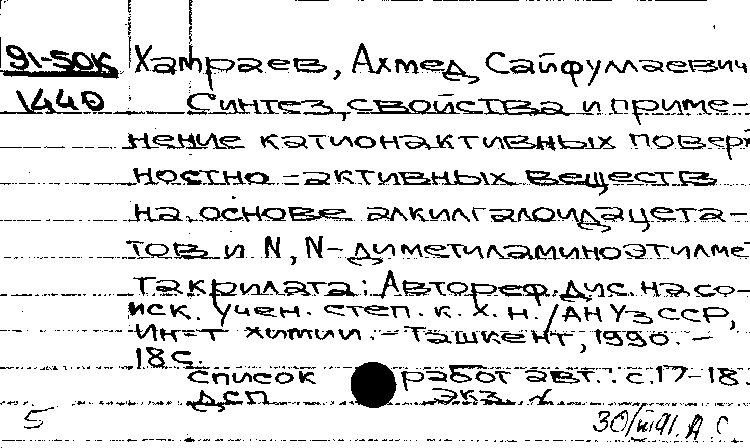 91-50К Хатраев, Ахмед Сайфуллаевич
1440 Синтез, свойства и приме-
нение катионактивных повер
ностно-активных веществ
на основе алкилгалоидацета-
тов и N, N-диметиламиноэтилме
такрилата: Автореф. дис. на со-
иск. учен. степ. к. х. н. / АН УзССР,
Ин-т химии. - Ташкент, 1990. -
18 с.
список работ авт.: с. 17-18.
дсп экз.
5 30/III 91. А. С.